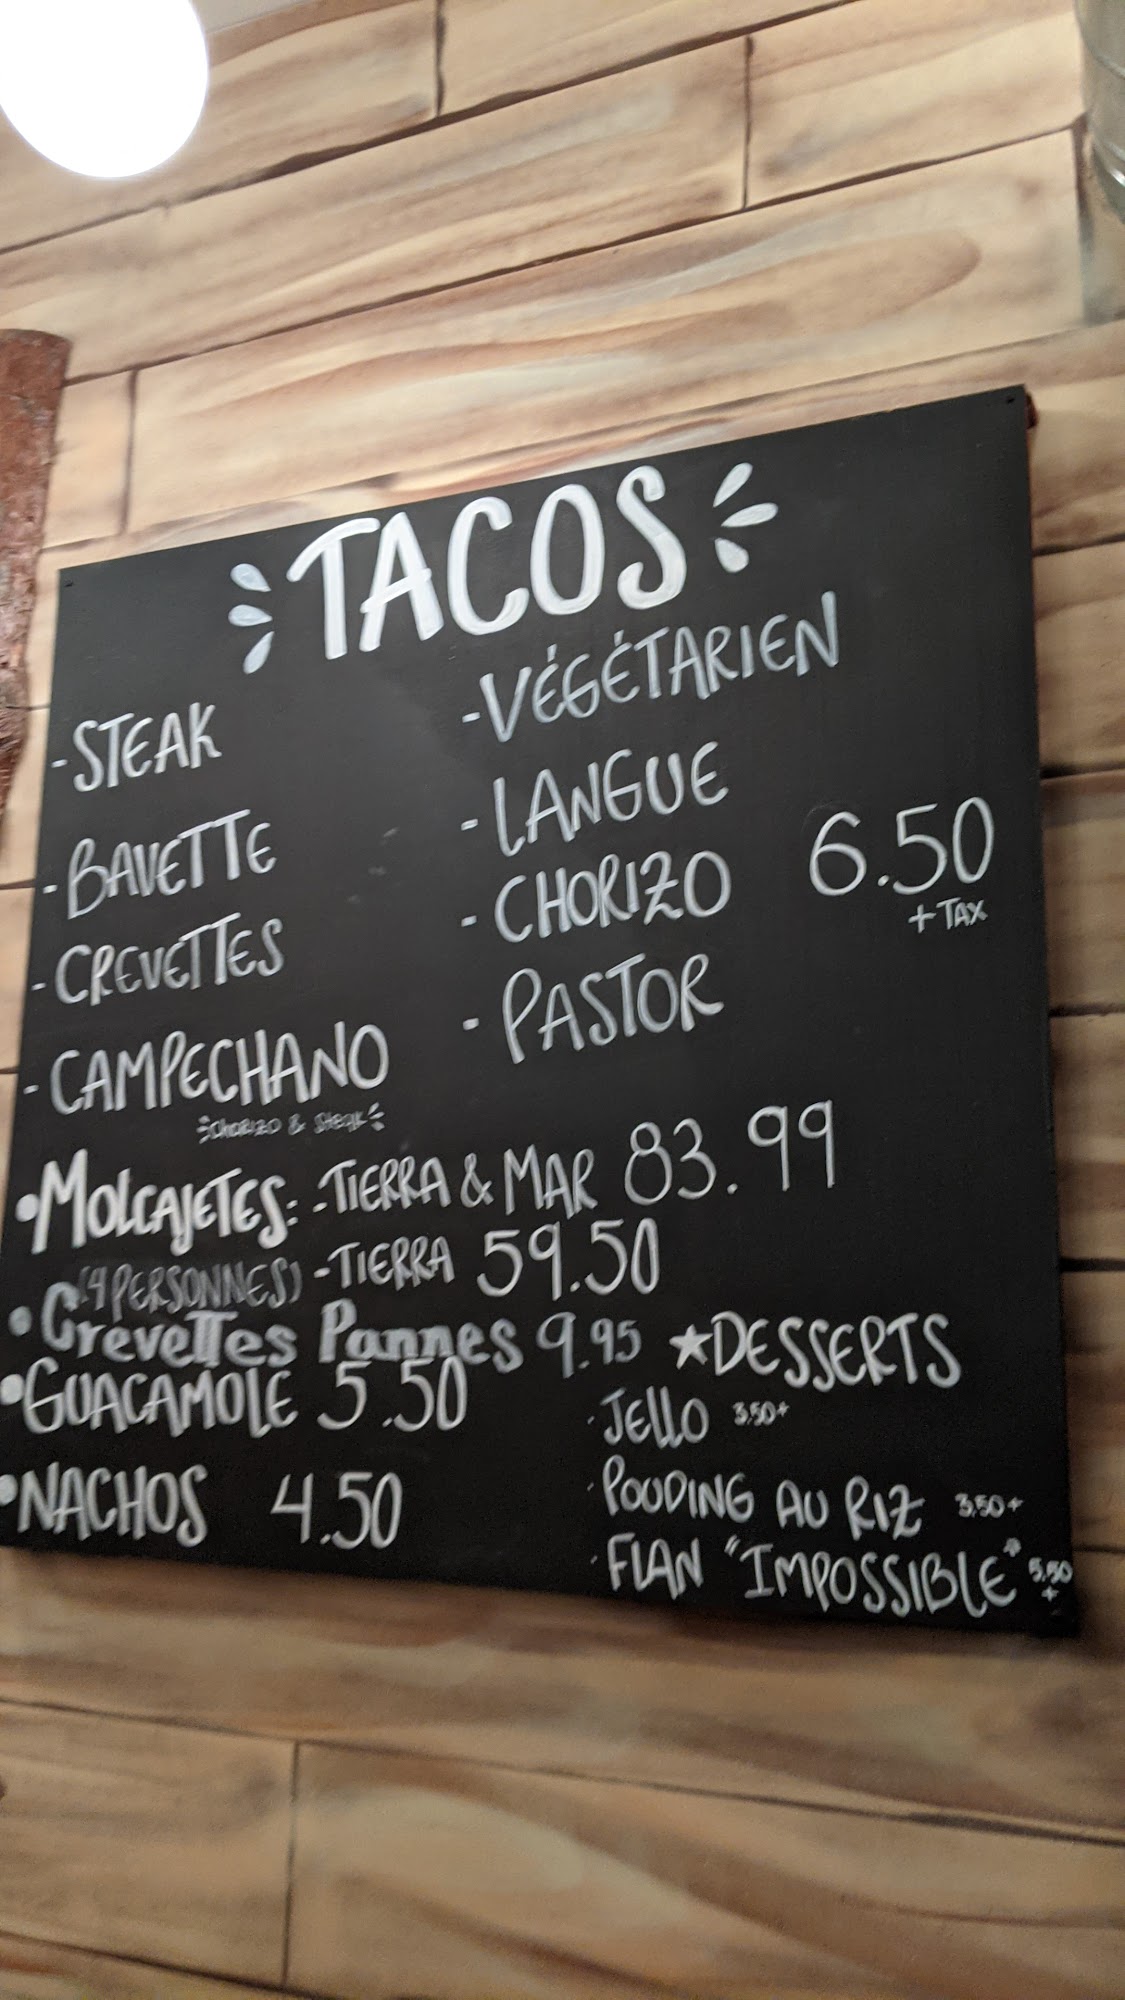 TACOS
-STEAK
-BAVETTE
-CREVETTES
-CAMPECHANO
CHORIZO & STEAK
-VÉGÉTARIEN
-LANGUE
-CHORIZO
-PASTOR
6.50
+ TAX
•MOLCAJETES: -TIERRA & MAR 83.99
(4 PERSONNES) -TIERRA 59.50
•Crevettes Pannes 9.95
•GUACAMOLE 5.50
•NACHOS 4.50
★DESSERTS
·JELLO 3.50+
·POUDING AU RIZ 3.50+
·FLAN "IMPOSSIBLE" 5.50
+